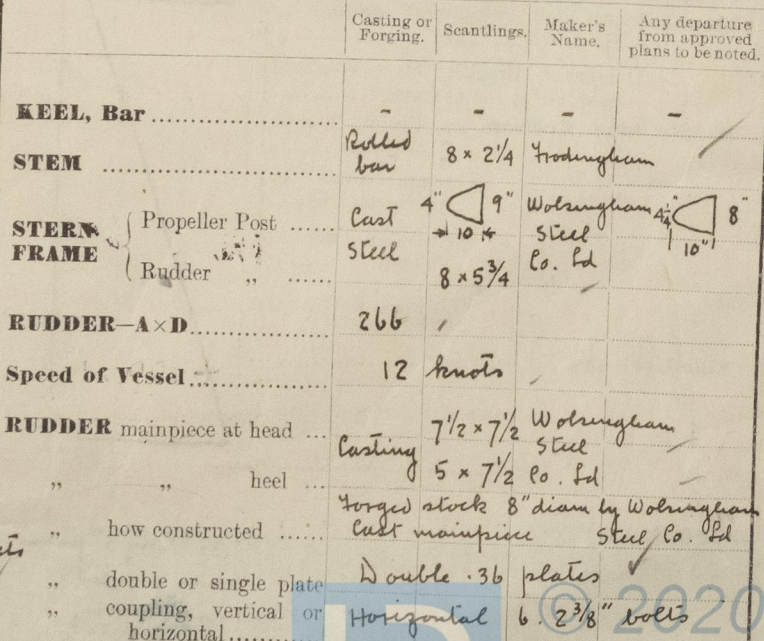 Casting or Forging. Scantlings. Maker's Name. Any departure from approved plans to be noted.
KEEL, Bar - - - -
STEM Rolled bar 8 x 2 1/4 Frodingham
STERN FRAME { Propeller Post Cast Steel 4" 9" 10 Wolsingham Steel Co. Ld 4 1/4" 8" 10"
Rudder „ 8 x 5 3/4
RUDDER—A×D 266
Speed of Vessel 12 knots
RUDDER mainpiece at head ... Casting 7 1/2 x 7 1/2 Wolsingham Steel Co. Ld
„ „ heel ... 5 x 7 1/2
Forged stock 8" diam by Wolsingham
„ how constructed Cast mainpiece Steel Co. Ld
„ double or single plate Double .36 plates
„ coupling, vertical or horizontal Horizontal 6. 2 3/8" bolts
© 2020